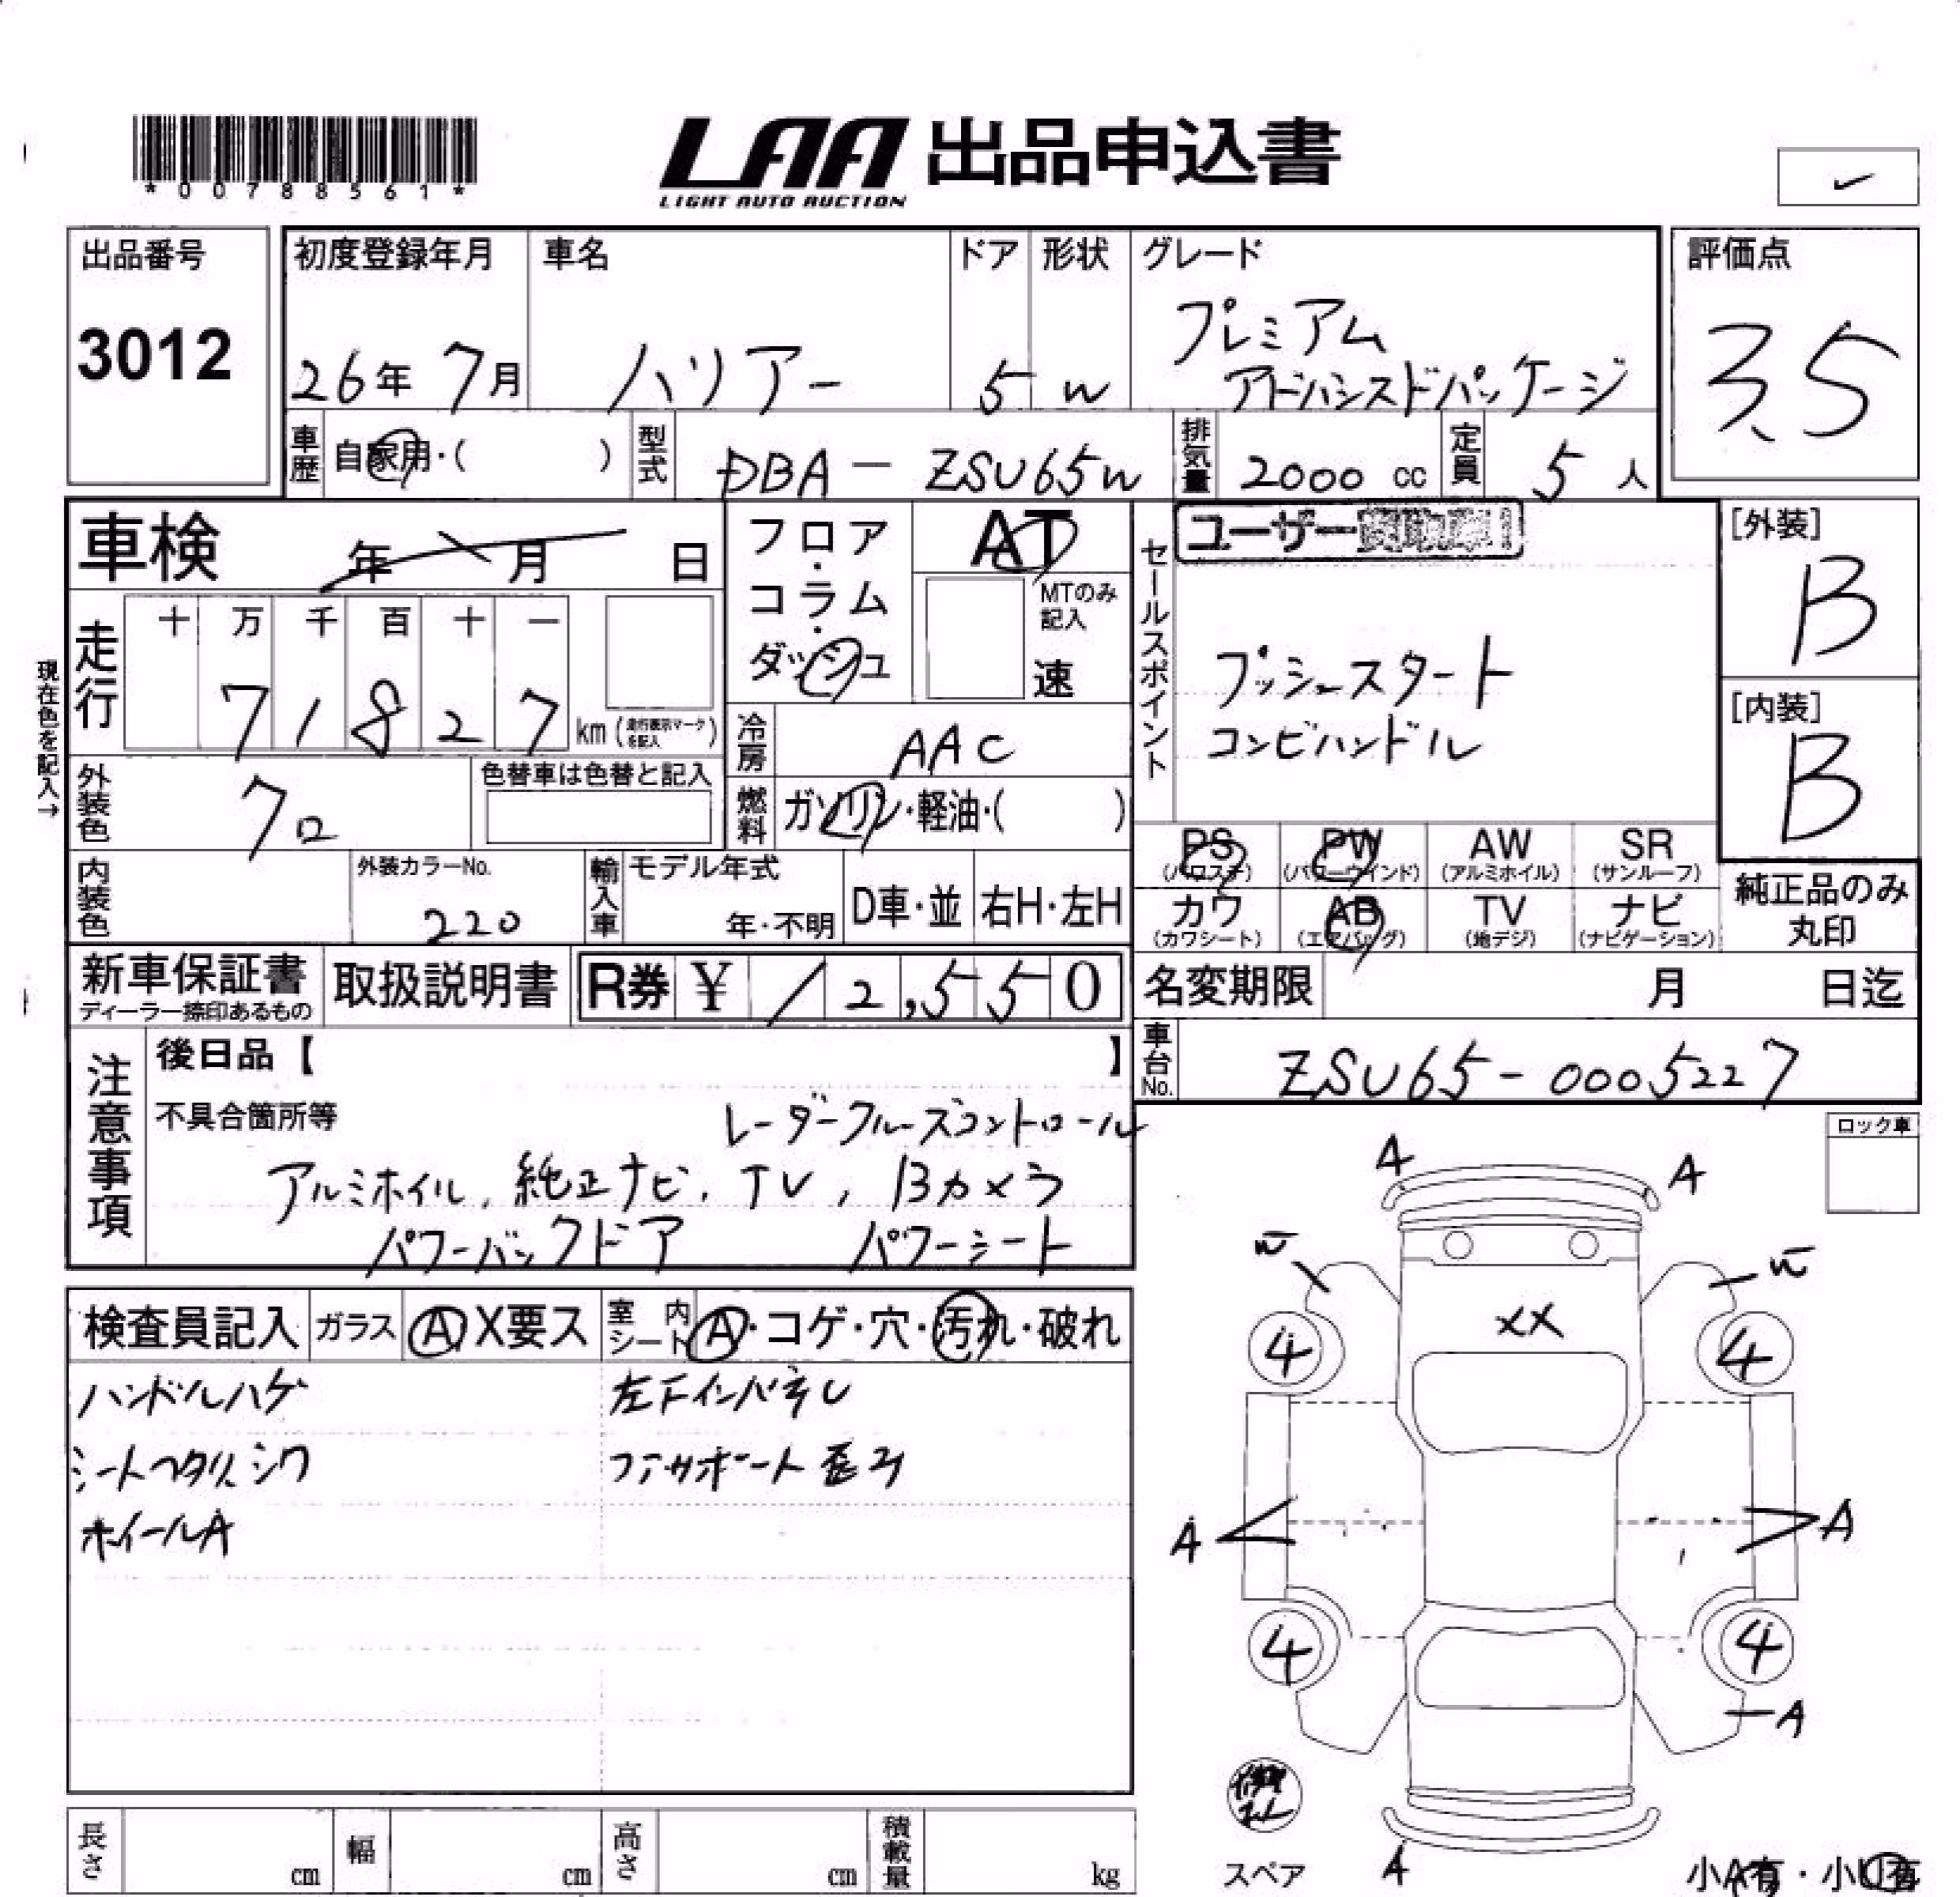 *00788561*
LAA 出品申込書
LIGHT AUTO AUCTION
出品番号
3012
初度登録年月
26年 7月
車名
ハリアー
ドア
5
形状
W
グレード
プレミアム
アドバンスドパッケージ
評価点
3.5
車歴 自家用・( )
型式 DBA-ZSU65W
排気量 2000 cc
定員 5 人
車検 年 月 日
フロア・コラム・ダッシュ
AT
MTのみ記入
速
セールスポイント
ユーザー
プッシュスタート
コンビハンドル
[外装]
B
[内装]
B
現在色を記入→
走行
十 万 千 百 十 一
7 1 8 2 7 km (走行表示マークを記入)
冷房 AAC
燃料 ガソリン・軽油・( )
外装色 クロ
色替車は色替と記入
内装色
外装カラーNo.
220
輸入車
モデル年式
年・不明
D車・並
右H・左H
PS (パワステ)
PW (パワーウインド)
AW (アルミホイル)
SR (サンルーフ)
カワ (カワシート)
AB (エアバッグ)
TV (地デジ)
ナビ (ナビゲーション)
純正品のみ丸印
新車保証書
ディーラー捺印あるもの
取扱説明書
R券 ¥ 12,550
名変期限 月 日迄
車台No. ZSU65-0005227
注意事項
後日品【 】
不具合箇所等
レーダークルーズコントロール
アルミホイル, 純正ナビ, TV, Bカメラ
パワーバックドア パワーシート
ロック車
検査員記入
ガラス A X要ス
室内シート A・コゲ・穴・汚れ・破れ
ハンドルハゲ
シートヘタリ, シワ
ホイールA
コアサポート歪み
A A
W W
XX
4 4
A A
4 4
A
A
スペア
小A有・小U有
長さ cm
幅 cm
高さ cm
積載量 kg